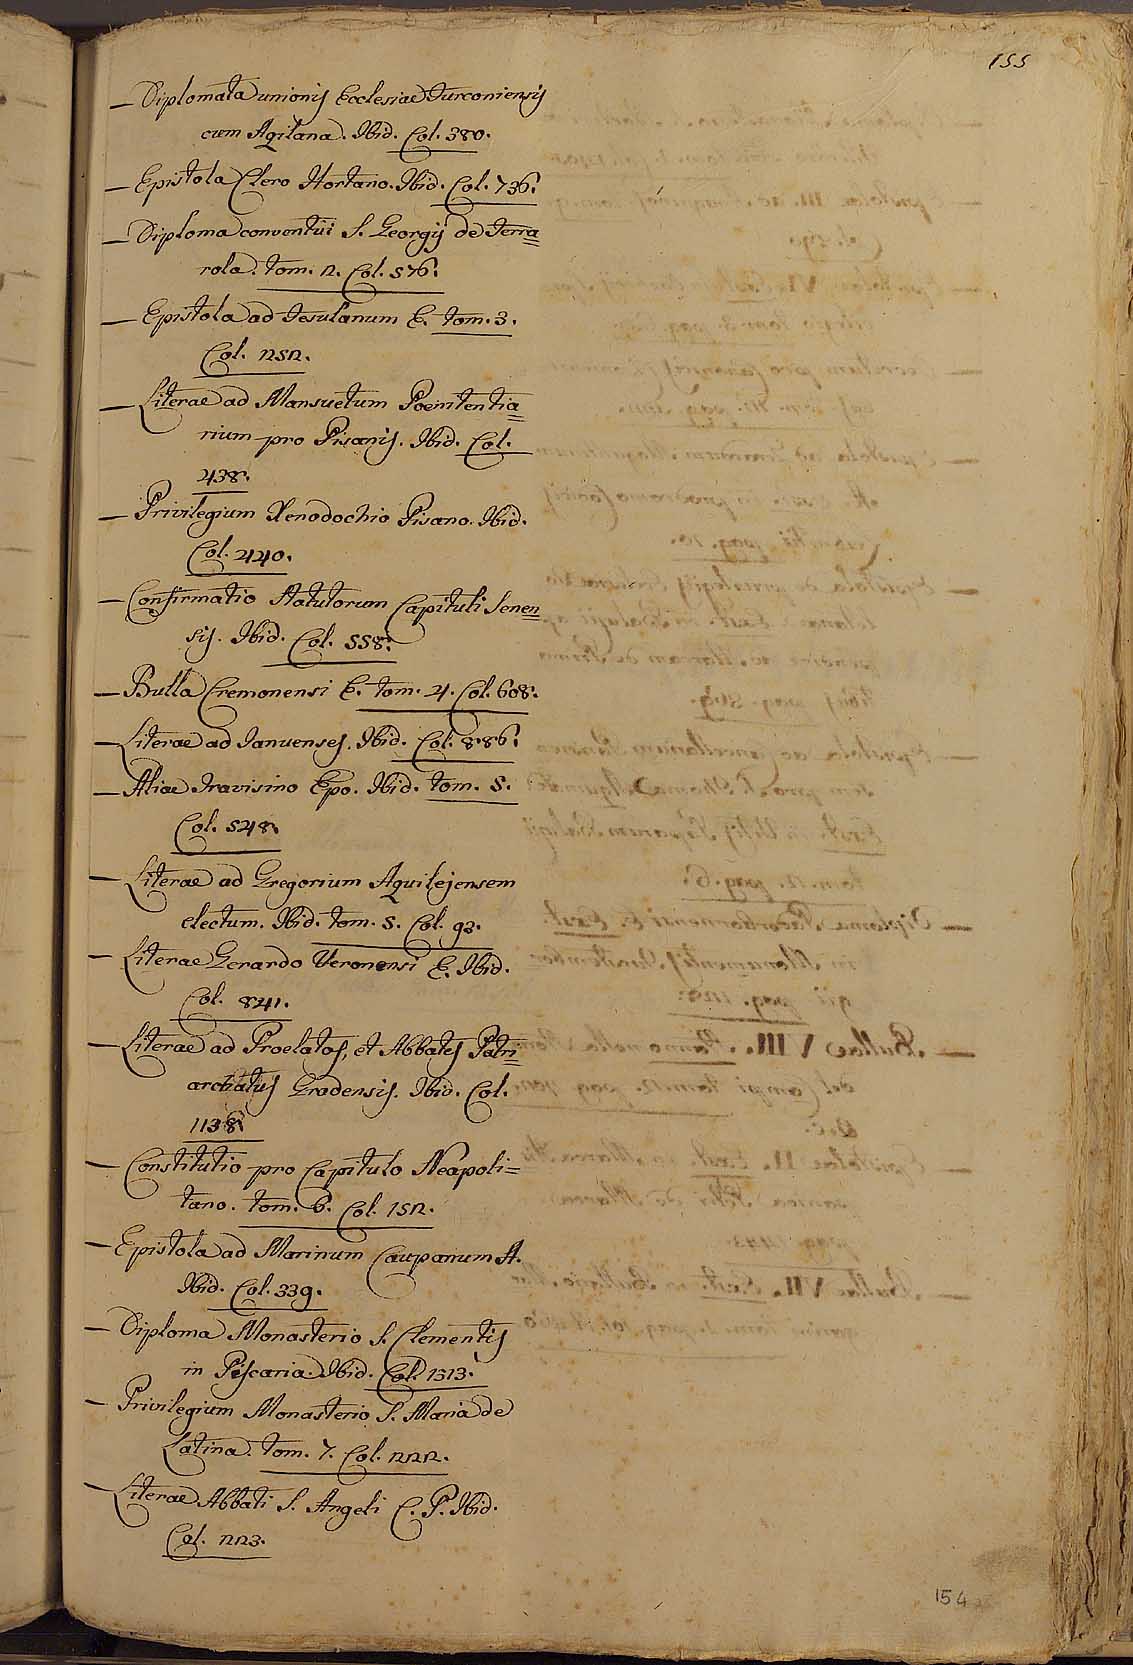 155
— Diplomata unionis Ecclesiae Furconiensis
cum Aqilana. Ibid. Col. 380.
— Epistola Clero Hortano. Ibid. Col. 736.
— Diploma conventui S. Georgij de Terra=
rola. tom. 2. Col. 576.
— Epistola ad Fesulanum E. tom. 3.
Col. 252.
— Literae ad Mansuetum Poenitentia=
rium pro Pisanis. Ibid. Col.
438.
— Privilegium Xenodochio Pisano. Ibid.
Col. 440.
— Confirmatio Statutorum Capituli Senen=
sis. Ibid. Col. 558.
— Bulla Cremonensi E. tom. 4. Col. 608.
— Literae ad Ianuenses. Ibid. Col. 886.
— Aliae Travisino Epo. Ibid. tom. 5.
Col. 548.
— Literae ad Gregorium Aquilejensem
electum. Ibid. tom. 5. Col. 93.
— Literae Gerardo Veronensi E. Ibid.
Col. 841.
— Literae ad Proelatos, et Abbates Patri=
archatus Gradensis. Ibid. Col.
1138.
— Constitutio pro Capitulo Neapoli=
tano. tom. 6. Col. 152.
— Epistola ad Marinum Caupanum A.
Ibid. Col. 339.
— Diploma Monasterio S. Clementis
in Piscaria. Ibid. Col. 1313.
— Privilegium Monasterio S. Maria de
Latina. tom. 7. Col. 222.
— Literae Abbati S. Angeli C. P. Ibid.
Col. 223.
154